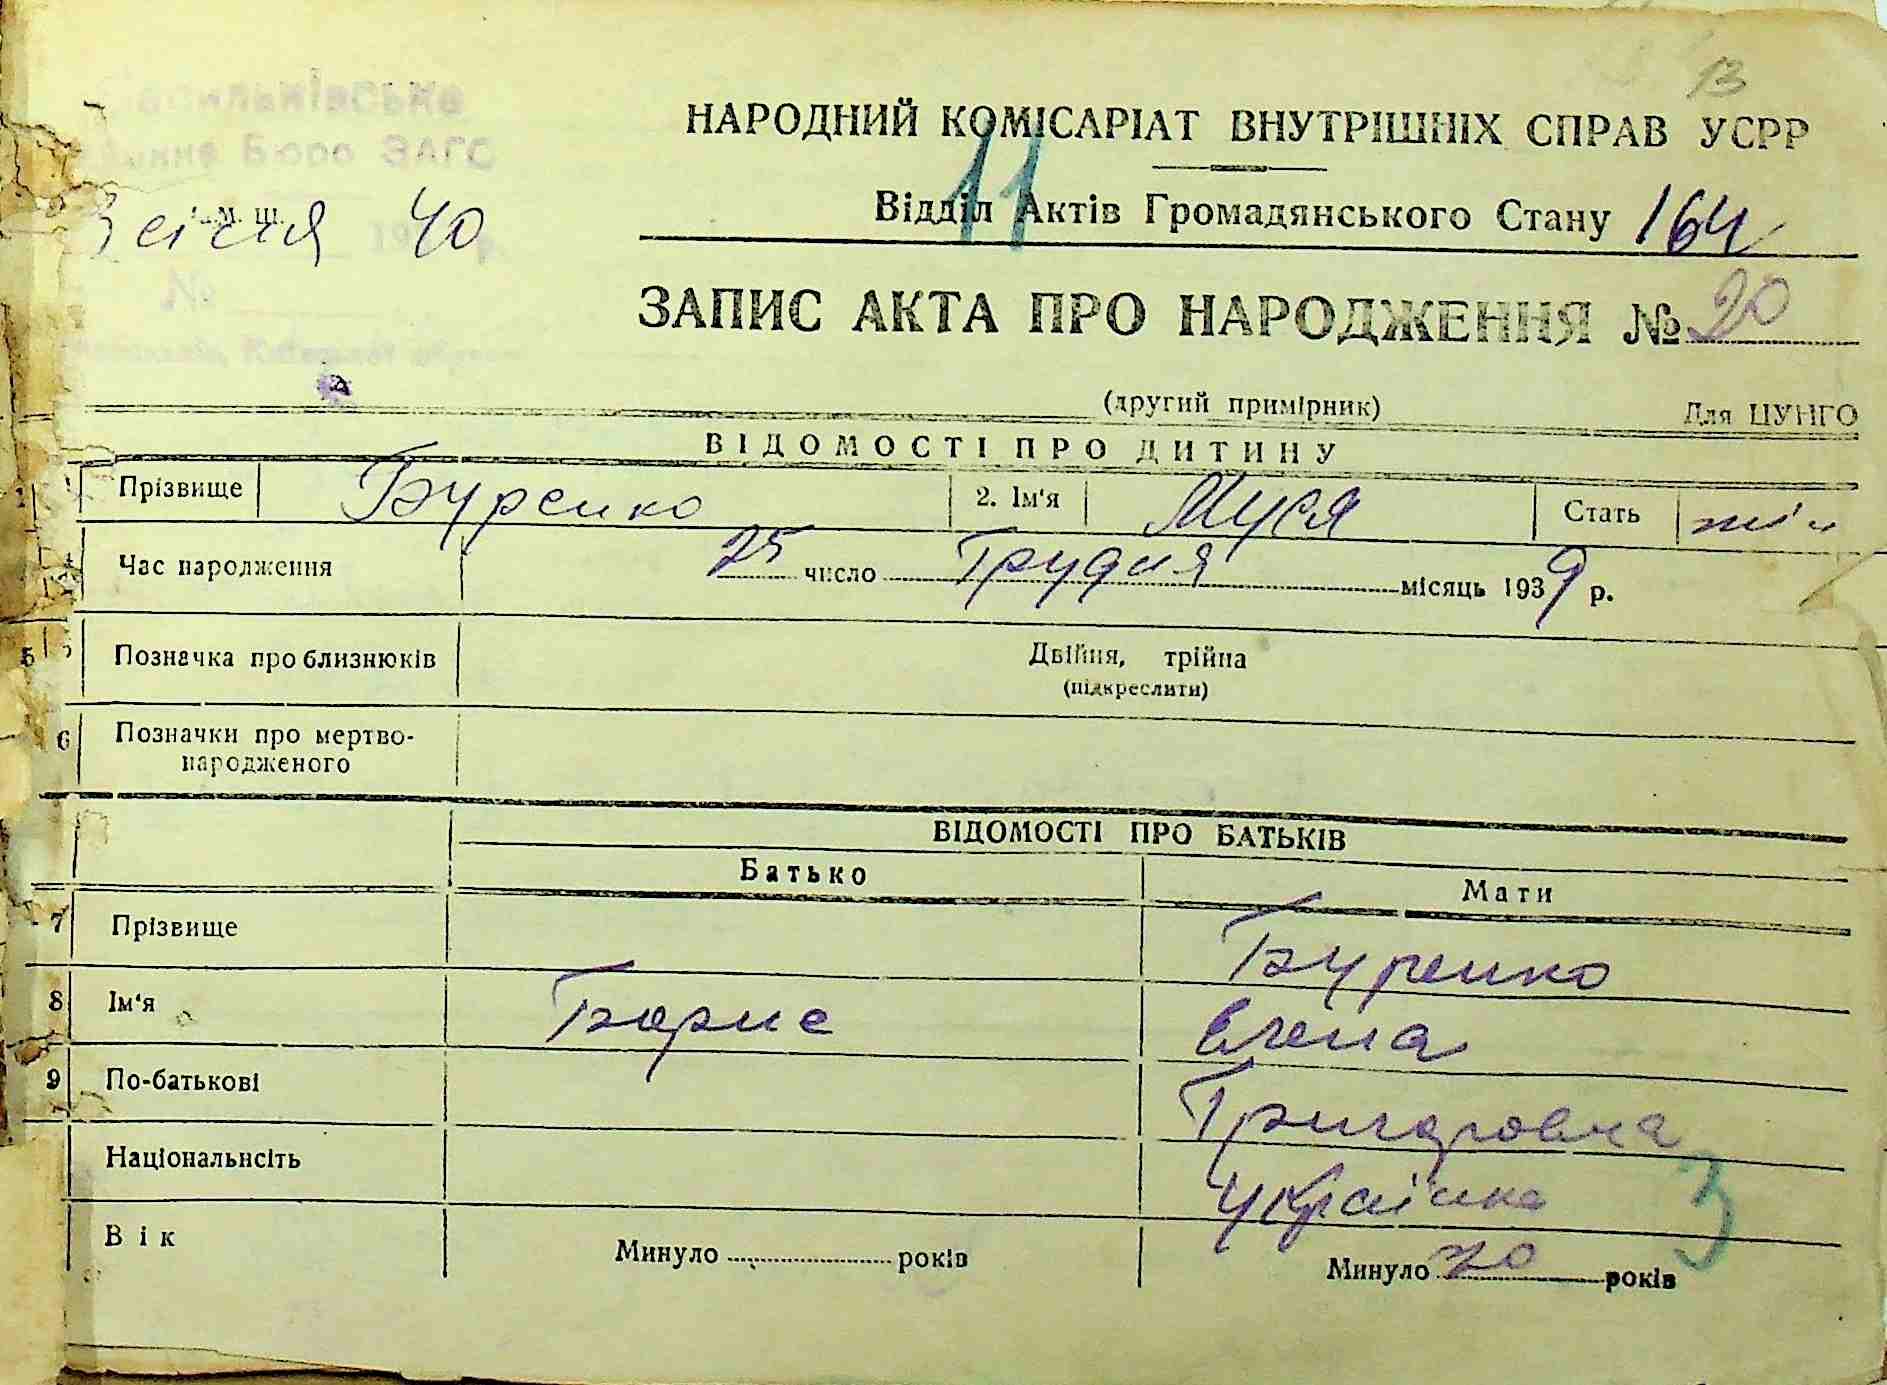 13
НАРОДНИЙ КОМІСАРІАТ ВНУТРІШНІХ СПРАВ УСРР
Бюро ЗАГС
11
Відділ Актів Громадянського Стану 164
3 січня 40
№
ЗАПИС АКТА ПРО НАРОДЖЕННЯ № 20
(другий примірник)
Для ЦУНГО
ВІДОМОСТІ ПРО ДИТИНУ
Прізвище Буренко 2. Ім'я Муся Стать жін
Час народження 25 число Грудня місяць 1939 р.
5 Позначка про близнюків Двійня, трійна
(підкреслити)
6 Позначки про мертво-
народженого
ВІДОМОСТІ ПРО БАТЬКІВ
Батько Мати
7 Прізвище Буренко
8 Ім'я Борис Елена
9 По-батькові Григоровна
Національнсіть українка 3
Вік Минуло років Минуло 20 років